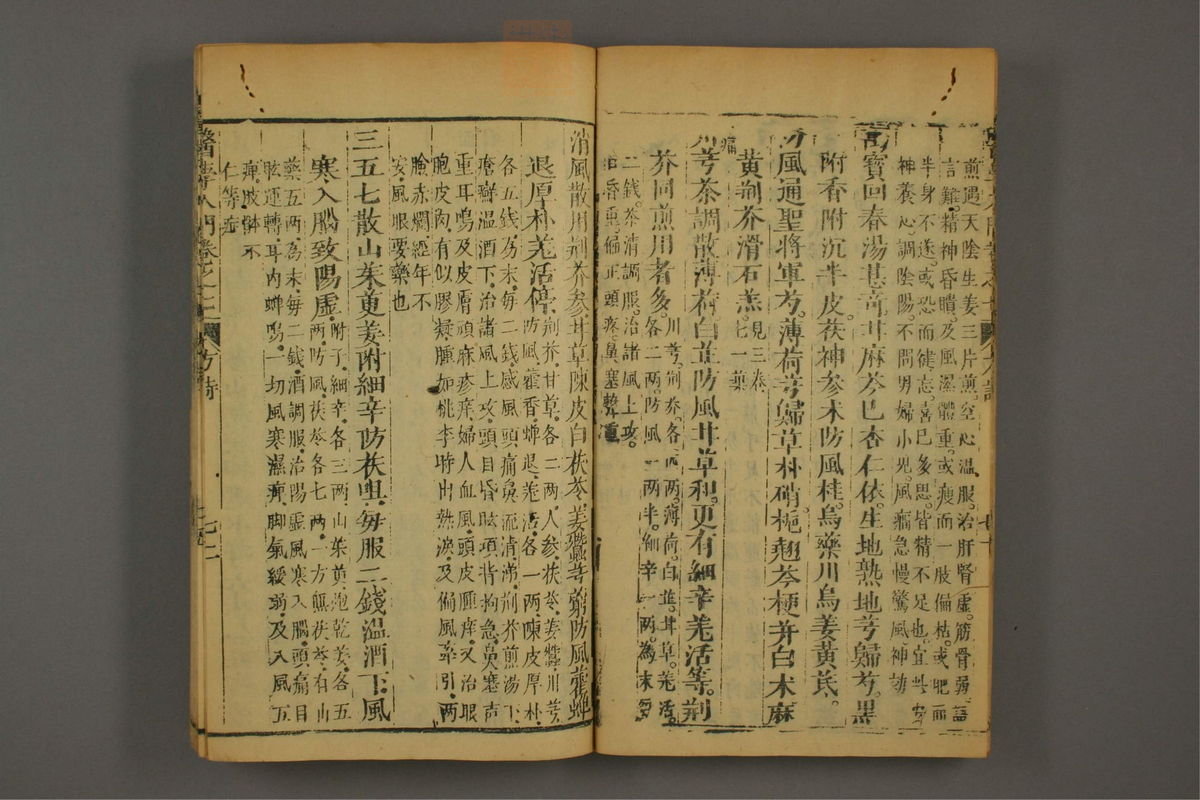 煎遇天陰生姜三片煎空心溫服治肝腎虛筋骨弱語
言難精神昏瞶及風濕體重或瘦而一肢偏枯或肥而
半身不遂或恐而健忘喜巳多思皆精不足也宜此安
神養心調陰陽不問男婦小兒風癇急慢驚風神効
寶回春湯甚奇甘麻芩巳杏仁依生地熟地芎歸芍黑
附香附沉半皮茯神參术防風桂烏藥川烏姜黃芪
風通聖將軍芍薄荷芎歸草朴硝梔翹芩梗幷白术麻
黃荆芥滑石羔見三奏七一藥
痛
川芎茶調散薄荷白芷防風甘草和更有細辛羌活等荆
芥同煎用者多川芎荆芥各四兩薄荷白芷甘草羌活
各二兩防風一兩半細辛一兩為末每
二錢茶清調服治諸風上攻
昏重偏正頭疼鼻塞聲重
消風散用荆芥參甘草陳皮白茯苓姜蠶芎藭防風藿蟬
退厚朴羌活停荆芥甘草各二兩人參茯苓姜蠶川芎
防風藿香蟬退羌活各一兩陳皮厚朴
各五錢為末每二錢感風頭痛鼻流清涕荆芥煎湯下
瘡癬溫酒下治諸風上攻頭目昏眩項背拘急鼻塞聲
重耳鳴及皮膚頑麻疹痒婦人血風頭皮腫痒又治眼
胞皮肉有似膠凝腫如桃李時出熱淚及偏風牽引兩
瞼赤爛經年不
安風眼要藥也
三五七散山茱萸姜附細辛防茯咀每服二錢溫酒下風
寒入腦致陽虛附子細辛各三兩山茱萸炮乾姜各五
兩防風茯苓各七兩一方無茯苓有山
藥五兩為末每二錢酒調服治陽虛風寒入腦頭痛目
眩運轉耳內蟬鳴一切風寒濕痺脚氣緩弱及入風五
痺肢體不
仁等症
醫學入門卷之七 方詩 七二